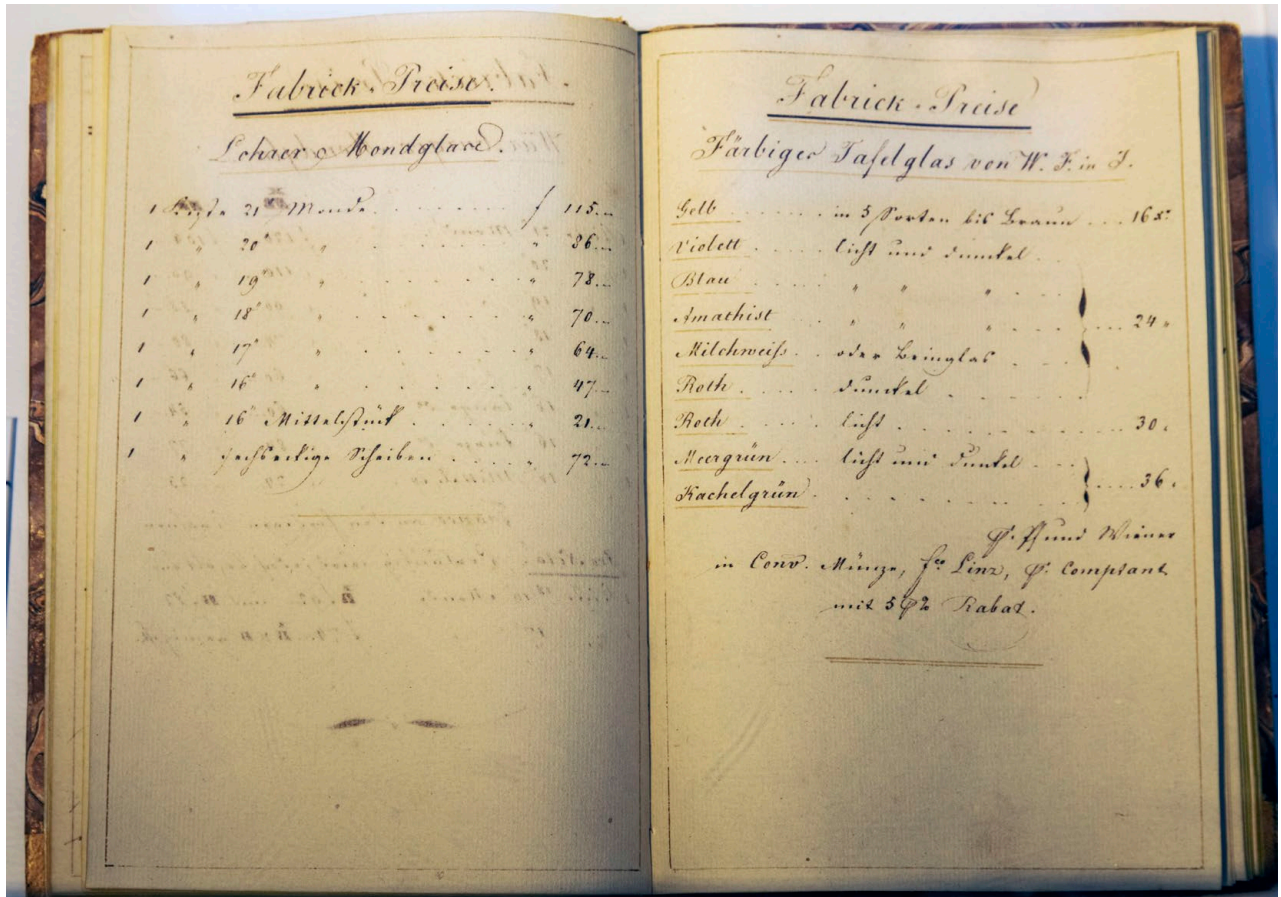 Fabrick-Preise.
Lohrer Mondglase.
1 Kiste 21" Monde . . . . . . f 115._
1 " 20" " . . . . . . " 86._
1 " 19" " . . . . . . " 78._
1 " 18" " . . . . . . " 70._
1 " 17" " . . . . . . " 64._
1 " 16" " . . . . . . " 47._
1 " 16" Mittelstück . . . . " 21._
1 " sechseckige Scheiben . . . . " 72._
Fabrick-Preise
Färbiges Tafelglas von W. F. in J.
Gelb . . . . . in 5 Sorten bis Braun . . . 16
Violett . . . . licht und dunckel . .
Blau . . . . " " " . . .
Amathist . . " " " . . . . . . 24 "
Milchweiß . . oder Beinglas . . .
Roth . . . . dunckel . . . .
Roth . . . . licht . . . . . . . . . 30 "
Meergrün . . . . licht und dunckel . . .
Kachelgrün . . . . . . . . . . . . 36 "
Pfund Wiener
in Conv. Münze, fco Linz, Comptant
mit 5 % Rabat.